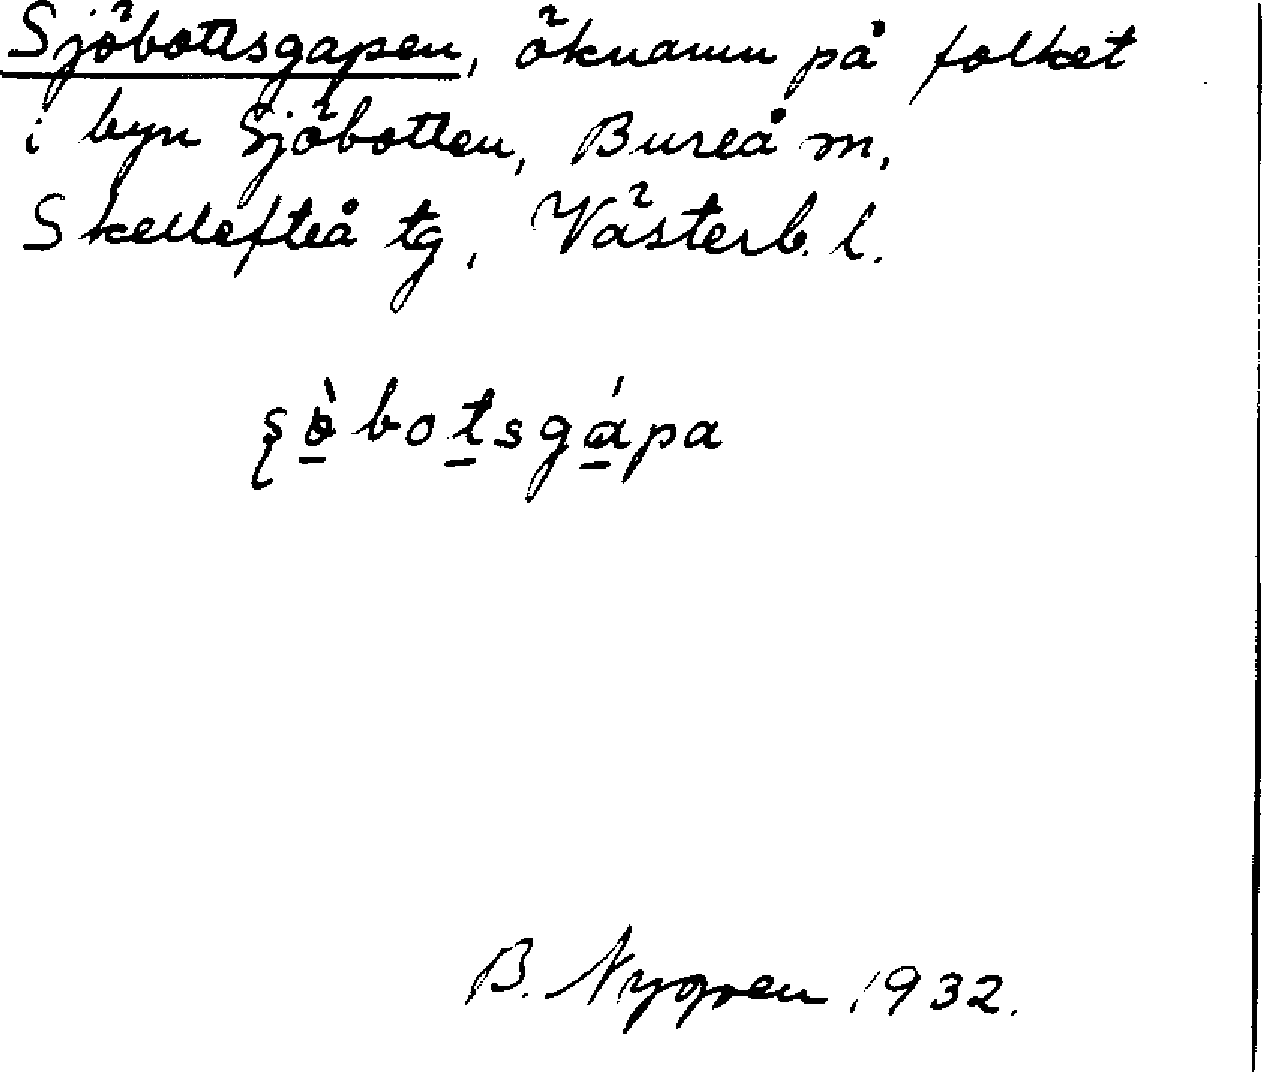 Sjöbottsgapen, öknamn på folket
i byn Sjöbotten, Bureå m,
Skellefteå tg, Västerb. l.
ʂö̀botsgápa
B. Nygren 1932.